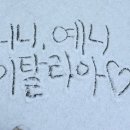 니니. 예니
이탈리아♡